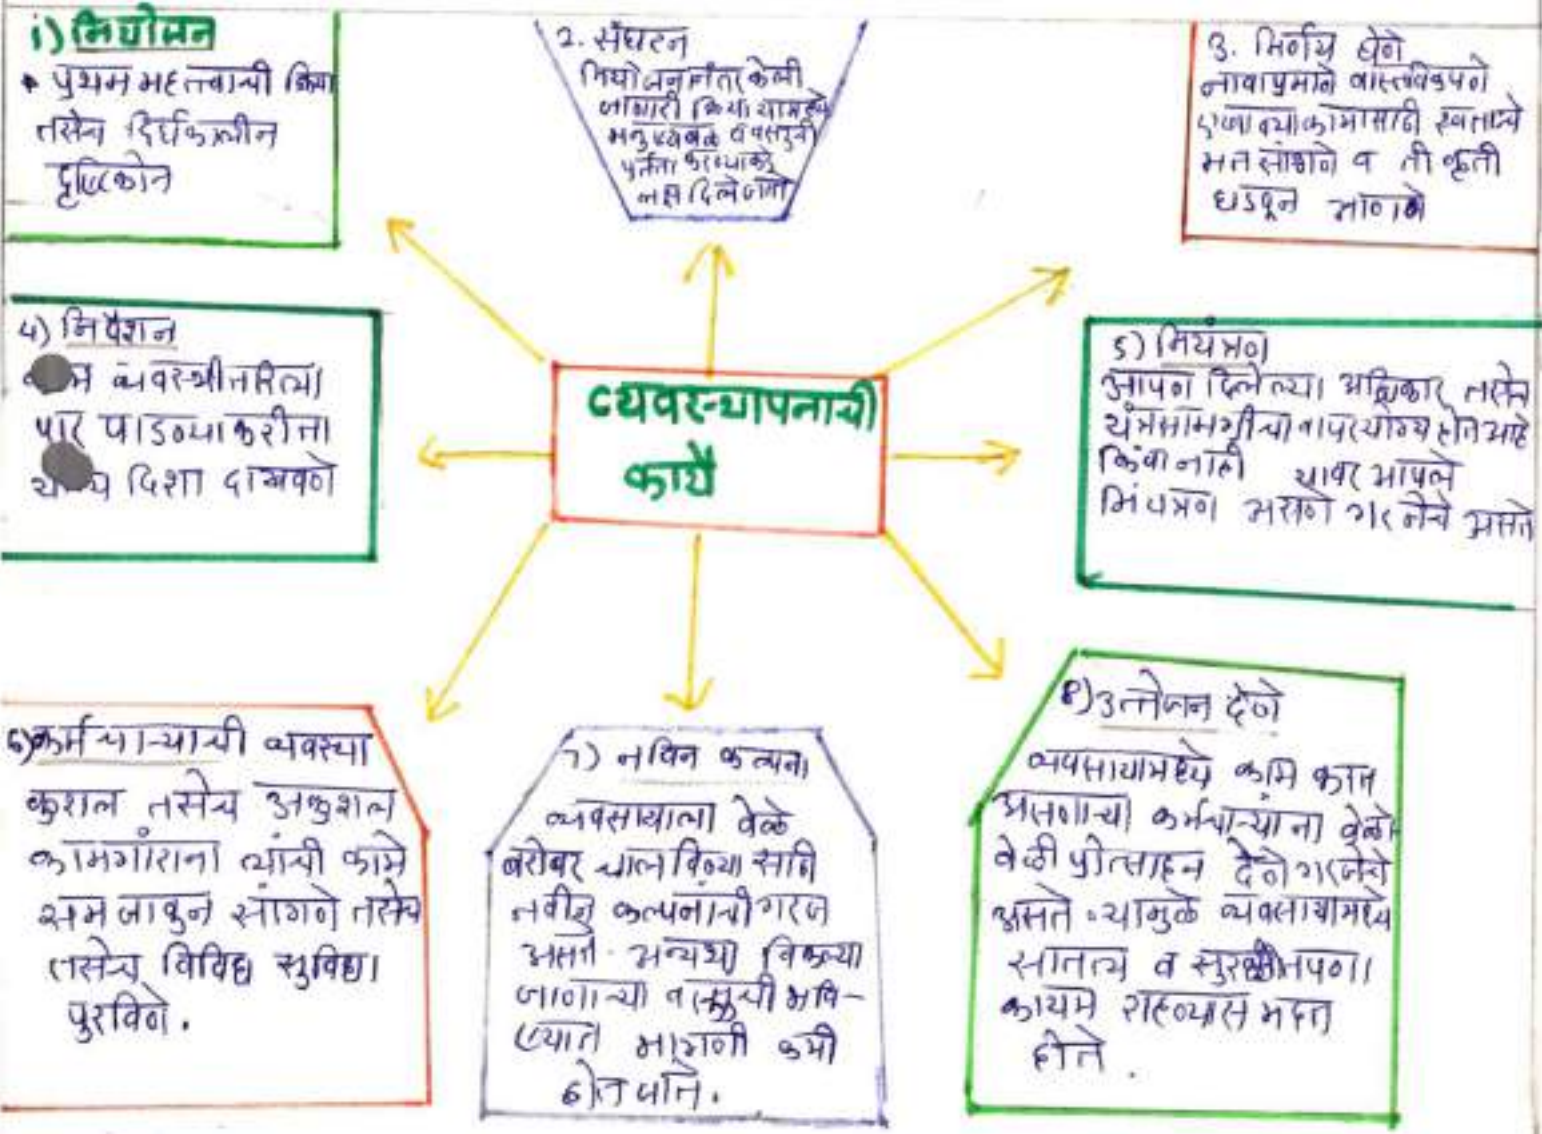 1) नियोजन
प्रथम महत्वाची क्रिया
तसेच दिर्घकालीन
दृष्टिकोन
2. संघटन
नियोजनानंतर केली
जाणारी क्रिया यामध्ये
मनुष्यबळ व वस्तुची
पुर्तता करण्याकडे
लक्ष दिले जाते
3. निर्णय घेणे
नावाप्रमाने वास्तविकपणे
एखाद्या कामासाठी स्वताचे
मत सांगणे व ती कृती
घडवून आणणे
व्यवस्थापनाची
कार्ये
4) निर्देशन
व्यवस्थीतरित्या
पार पाडण्याकरीता
दिशा दाखवणे
5) नियंत्रण
आपण दिलेल्या अधिकार तसेच
यंत्रसामग्रीचा वापर योग्य होत आहे
किंवा नाही यावर आपले
नियंत्रण असणे गरजेचे असते
6) कर्मचाऱ्याची व्यवस्था
कुशल तसेच अकुशल
कामगांराना त्यांची कामे
समजावुन सांगणे तसेच
तसेच विविध सुविधा
पुरविणे.
7) नविन कल्पना
व्यवसायाला वेळे
बरोबर चालविण्यासाठी
नवीन कल्पनांची गरज
असते. अन्यथा विकल्या
जाणाऱ्या वस्तूची भवि-
ष्यात मागणी कमी
होत जाते.
8) उत्तेजन देणे
व्यवसायामध्ये काम करत
असणाऱ्या कर्मचाऱ्यांना वेळो
वेळी प्रोत्साहन देणे गरजेचे
असते त्यामुळे व्यवसायामध्ये
सातत्य व सुरक्षीतपणा
कायम राहण्यास मदत
होते.